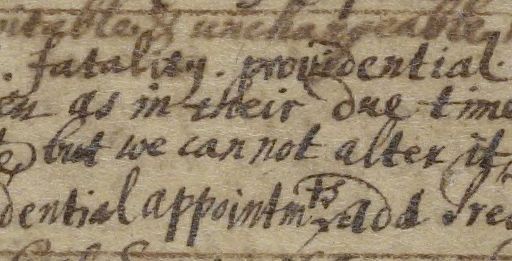 & unchangeable
. fatality. providential.
as in their due time
but we can not alter it
dential appointmts add